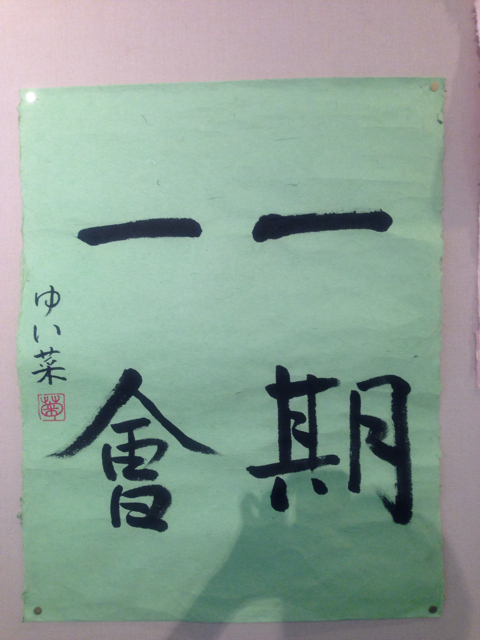 一期
一會
ゆい菜